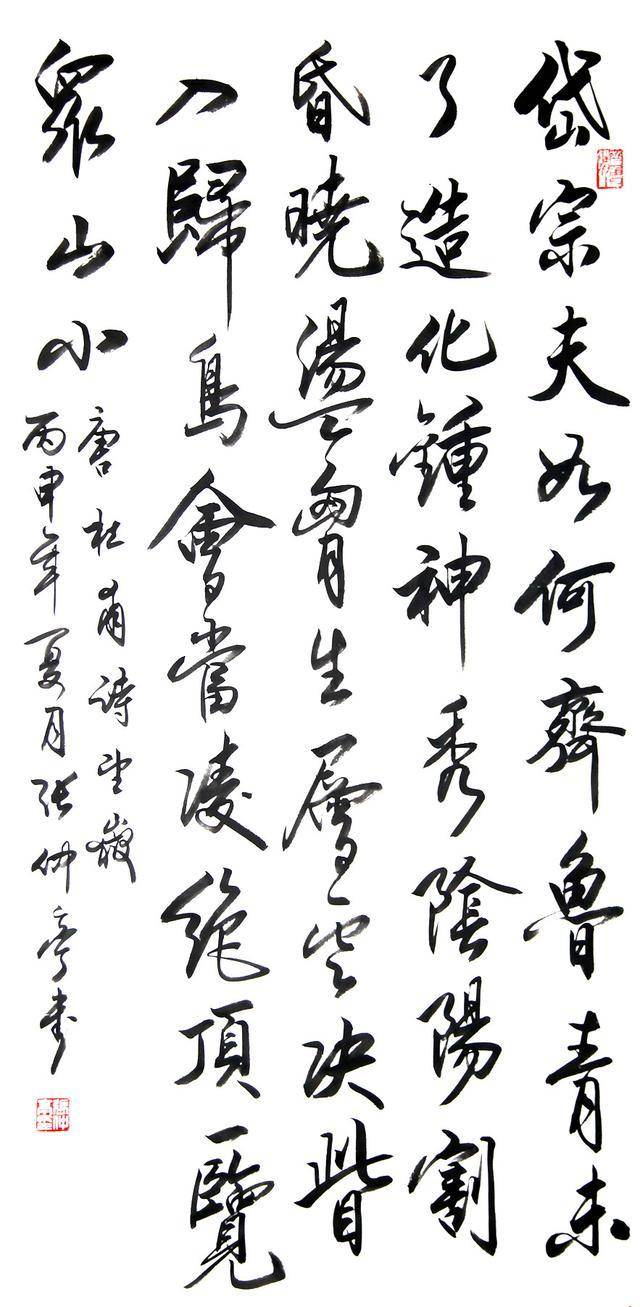 岱宗夫如何齊魯青未
了造化鍾神秀陰陽割
昏曉盪胷生層雲决眥
入歸鳥會當凌絕頂一覽
眾山小
唐杜甫詩望嶽
丙申年夏月張仲亭書